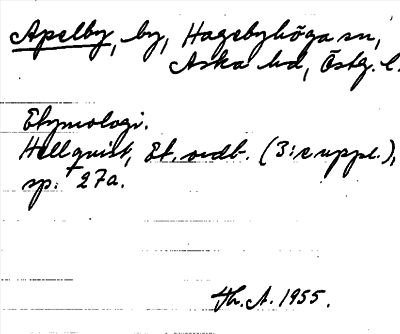 Apelby, by, Hagebyhöga sn,
Aska hd, Östg. l.
Etymologi.
Hellquist, Et. ordb. (3:e uppl.),
sp. 27a.
Th. A. 1955.